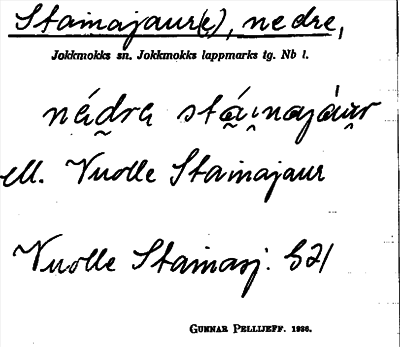 Stainajaur(e), nedre,
Jokkmokks sn. Jokkmokks lappmarks tg. Nb l.
nádra stáinajáur
ell. Vuolle Stainajaur
Vuolle Stainasj. S21
GUNNAR PELLIJEFF. 1926.